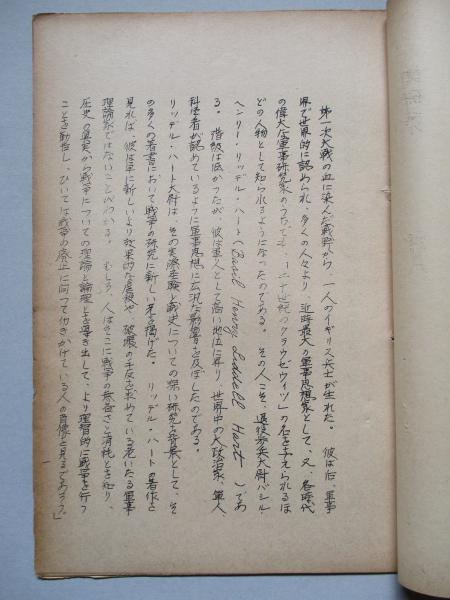 第一次大戦の血に染んだ戦野から、一人のイギリス兵士が生れた。 彼は后、軍事
界で世界的に認められ、多くの人々より 近時最大の軍事思想家として、又、各時代
の偉大な軍事研究家のうちでも、「二十世紀のクラウゼウィツ」の名を与えられるほ
どの人物として知られるようになったのである。 その人こそ、退役歩兵大尉バシル・
ヘンリー・リッデル・ハート(Basil Henry Liddell Hart)であ
る。 階級は低かったが、彼は軍人として高い地位に昇り、世界中の大政治家、軍人
科学者が認めているように軍事思想に広汎な影響を及ぼしたのである。
リッデル・ハート大尉は、その実際経験と戦史についての深い研究を背景として、そ
の多くの著書において戦争の研究に新しい光を掲げた。 リッデル・ハートの著作を
見れば、彼は単に新しいより効果的な虐殺や、破壊の手段を求めている老いたる軍事
理論家ではないことがわかる。 むしろ、人はそこに戦争の惨害さと消耗とを知り、
歴史の真実から戦争についての理論と論理とを導き出して、より理智的に戦争を行う
ことを勧告し、ひいては戦争の廃止に向って働きかけている人の肖像を見るであろう。」
一